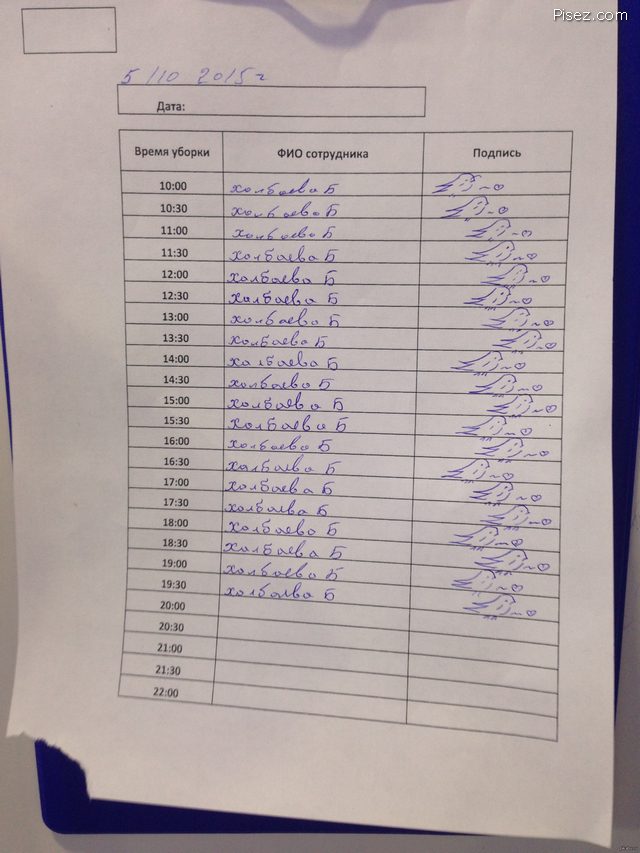 Pisez.com
5/10 2015г
Дата:
Время уборки ФИО сотрудника Подпись
10:00 Холбаева Б
10:30 Холбаева Б
11:00 Холбаева Б
11:30 Холбаева Б
12:00 Холбаева Б
12:30 Холбаева Б
13:00 Холбаева Б
13:30 Холбаева Б
14:00 Холбаева Б
14:30 Холбаева Б
15:00 Холбаева Б
15:30 Холбаева Б
16:00 Холбаева Б
16:30 Холбаева Б
17:00 Холбаева Б
17:30 Холбаева Б
18:00 Холбаева Б
18:30 Холбаева Б
19:00 Холбаева Б
19:30 Холбаева Б
20:00
20:30
21:00
21:30
22:00